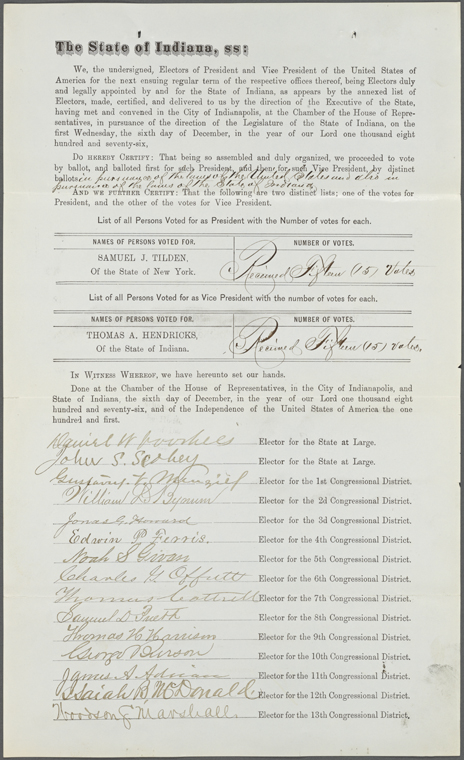 The State of Indiana, ss:
We, the undersigned, Electors of President and Vice President of the United States of
America for the next ensuing regular term of the respective offices thereof, being Electors duly
and legally appointed by and for the State of Indiana, as appears by the annexed list of
Electors, made, certified, and delivered to us by the direction of the Executive of the State,
having met and convened in the City of Indianapolis, at the Chamber of the House of Repre-
sentatives, in pursuance of the direction of the Legislature of the State of Indiana, on the
first Wednesday, the sixth day of December, in the year of our Lord one thousand eight
hundred and seventy-six,
Do hereby Certify: That being so assembled and duly organized, we proceeded to vote
by ballot, and balloted first for such President, and then for such Vice President, by distinct
ballots in pursuance of the laws of the United States and also in
pursuance of the laws of the State of Indiana
And we further Certify: That the following are two distinct lists; one of the votes for
President, and the other of the votes for Vice President.
List of all Persons Voted for as President with the Number of Votes for each.
NAMES OF PERSONS VOTED FOR. NUMBER OF VOTES.
SAMUEL J. TILDEN,
Of the State of New York. Received Fifteen (15) Votes
List of all Persons Voted for as Vice President with the number of votes for each.
NAMES OF PERSONS VOTED FOR. NUMBER OF VOTES.
THOMAS A. HENDRICKS,
Of the State of Indiana. Received Fifteen (15) Votes,
In Witness Whereof, we have hereunto set our hands.
Done at the Chamber of the House of Representatives, in the City of Indianapolis, and
State of Indiana, the sixth day of December, in the year of our Lord one thousand eight
hundred and seventy-six, and of the Independence of the United States of America the one
hundred and first.
Daniel W Voorhees Elector for the State at Large.
John S. Scobey Elector for the State at Large.
Gustavus V. Menzies Elector for the 1st Congressional District.
William D. Bynum Elector for the 2d Congressional District.
Jonas G. Howard Elector for the 3d Congressional District.
Edwin P Ferris. Elector for the 4th Congressional District.
Noah S Givan Elector for the 5th Congressional District.
Charles G Offutt Elector for the 6th Congressional District.
Thomas Cottrell Elector for the 7th Congressional District.
Samuel D Puett Elector for the 8th Congressional District.
Thomas H Harrison Elector for the 9th Congressional District.
George Burson Elector for the 10th Congressional District.
James A Adrian Elector for the 11th Congressional District.
Isaiah B. McDonald Elector for the 12th Congressional District.
Woodson G Marshall. Elector for the 13th Congressional District.